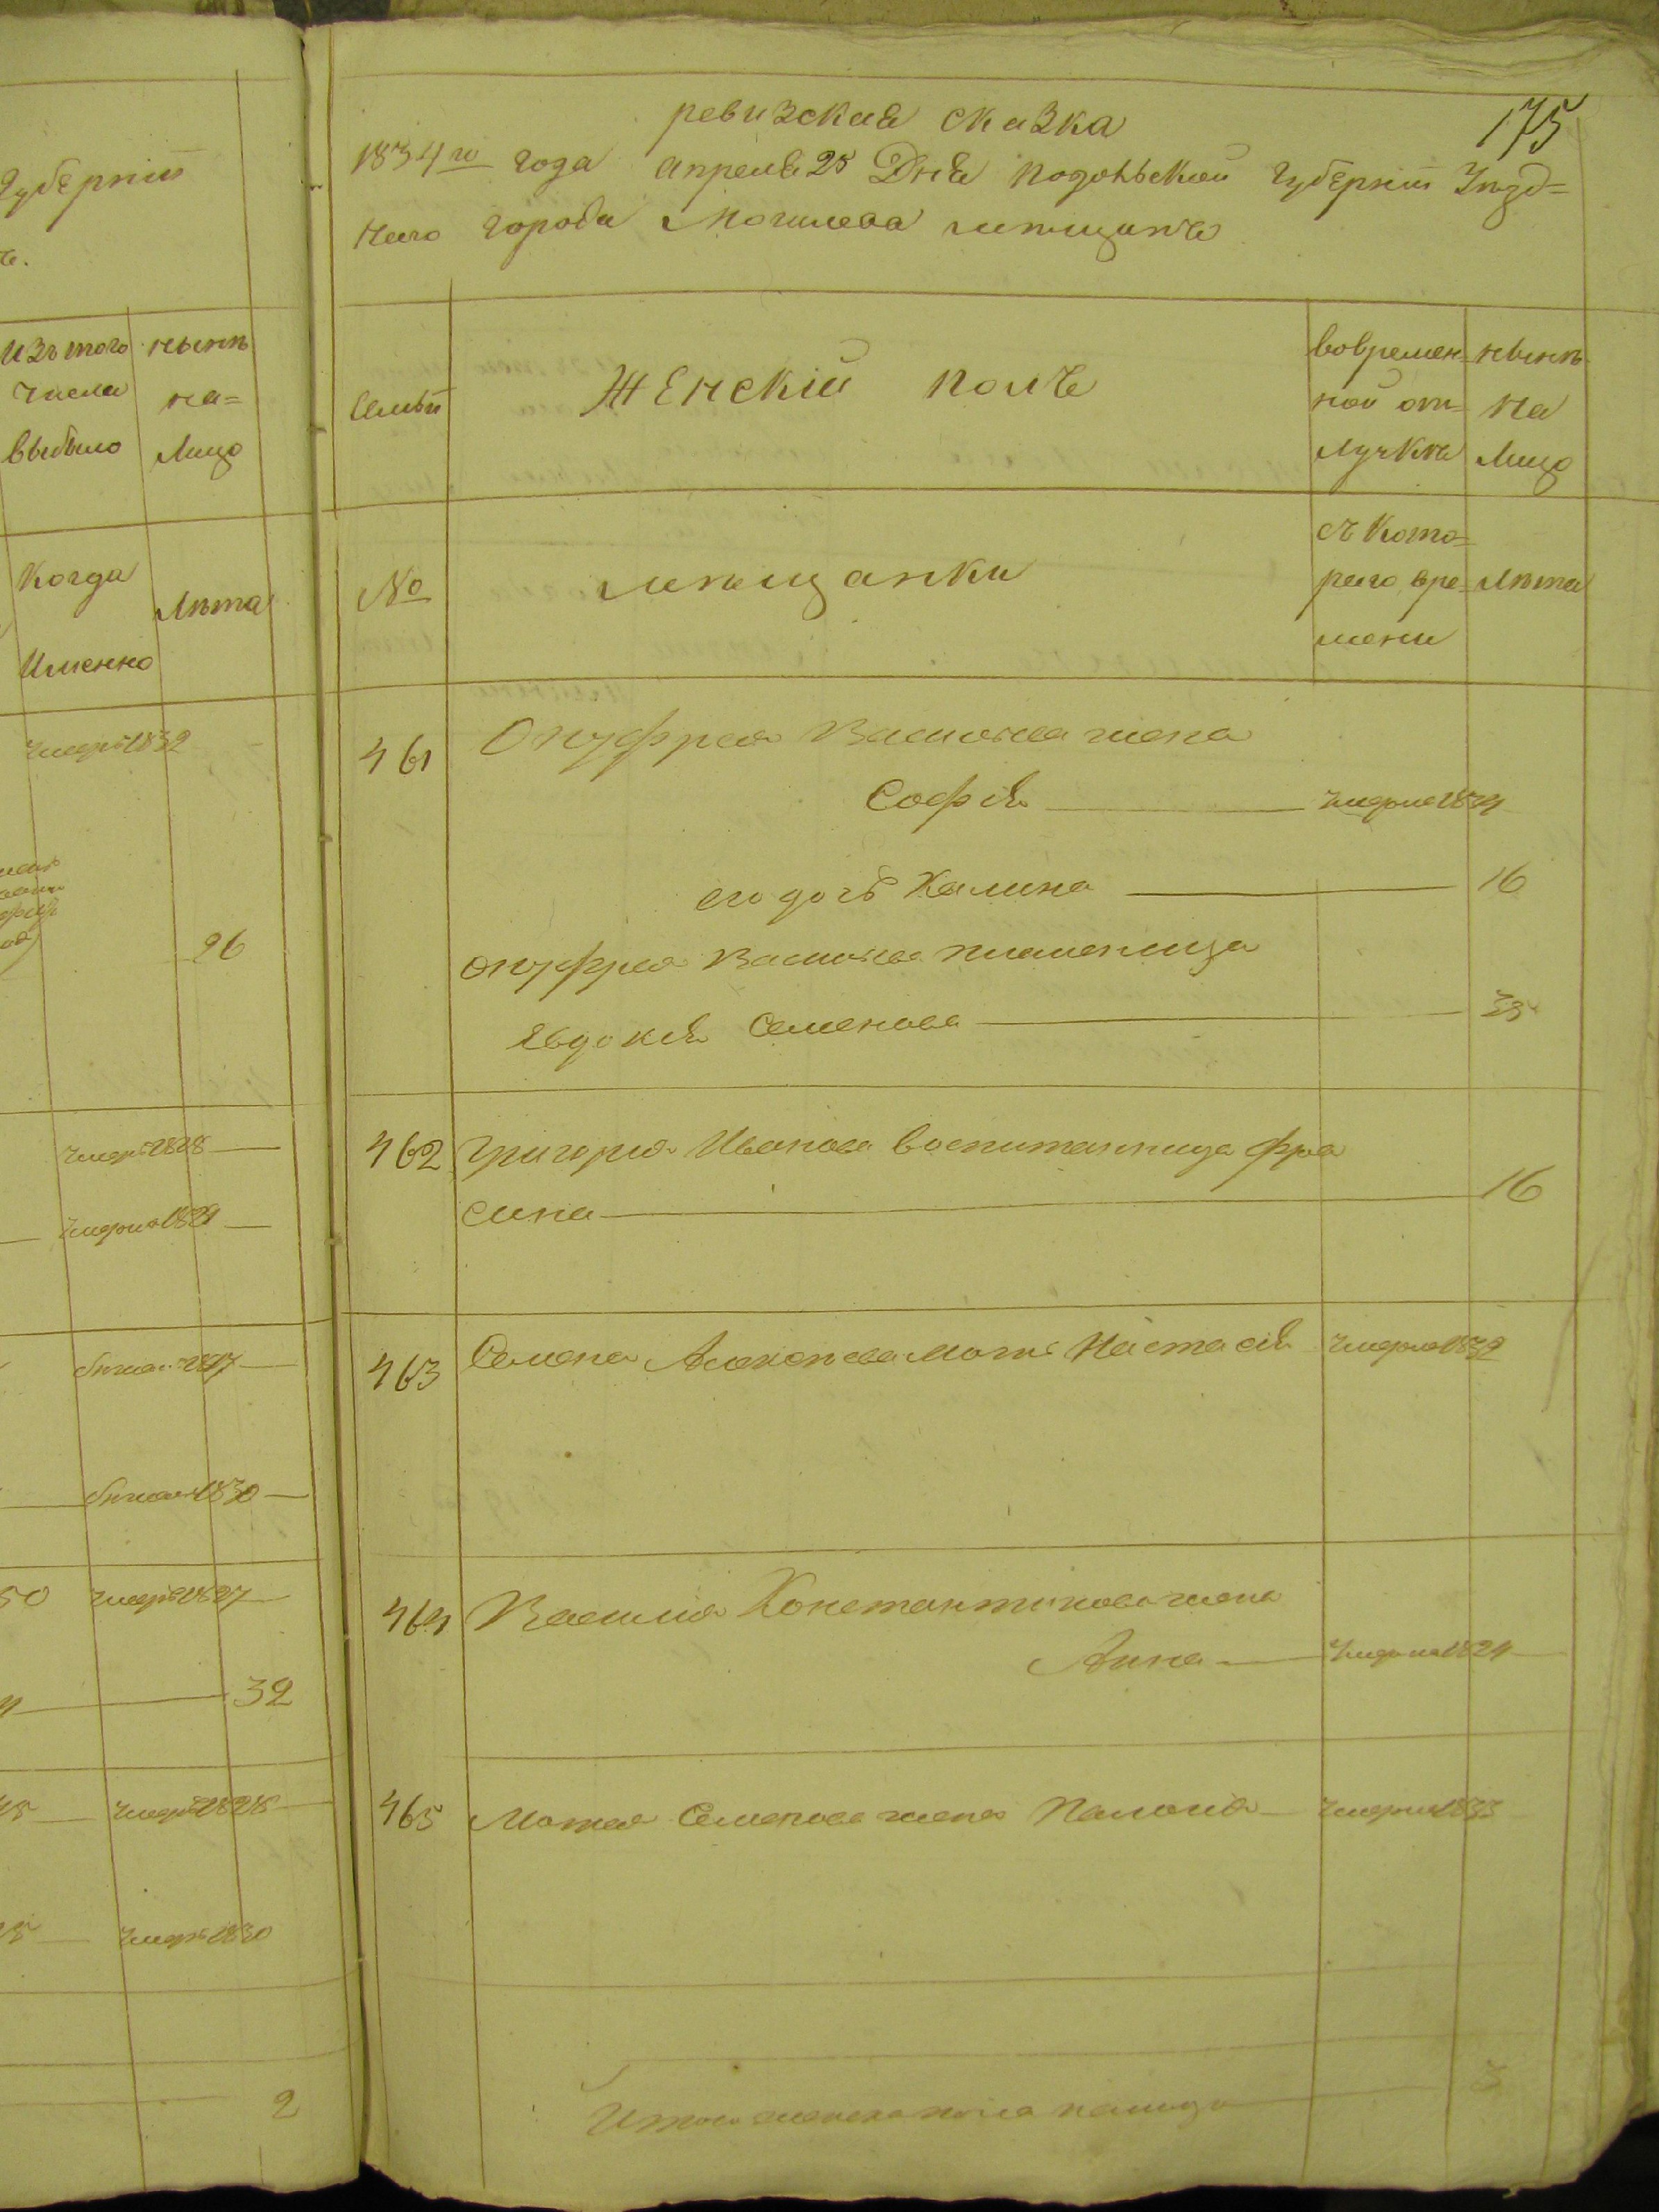 Губерніи
ъ.
изътого
числа
выбыло
нынѣ
на=
лицо
когда
Именно
лѣта
умеръ 1832
26
умеръ 1828
умеръ 1829
бѣжал 1817
бѣжал 1830
50 умеръ 1827
32
45 умеръ 1828
умеръ 1830
2
175
ревизская сказка
1834го года апреля 25 Дня подольской Губерніи Уѣзд=
наго города Могилева мѣщанъ
семьи
Женскій полъ
вовремен
ной от=
лучкѣ
нынѣ
на
лицо
№
мѣщанки
съ кото=
раго вре=
мени
лѣта
461 Онуфрея Васильева жена
Софія умерла 1834
его дочь Калина 16
Онуфрея Васильева племеница
Явдокія Семенова 35
462 Григорія Иванова воспитанница Фро
сина 16
463 Семена Алексеева мать Настасія умерла 1832
464 Василия Константинова жена
Анна умерла 1824
465 Матея Семенова жена Палагия умерла 1833
Итого женска пола налицо 3